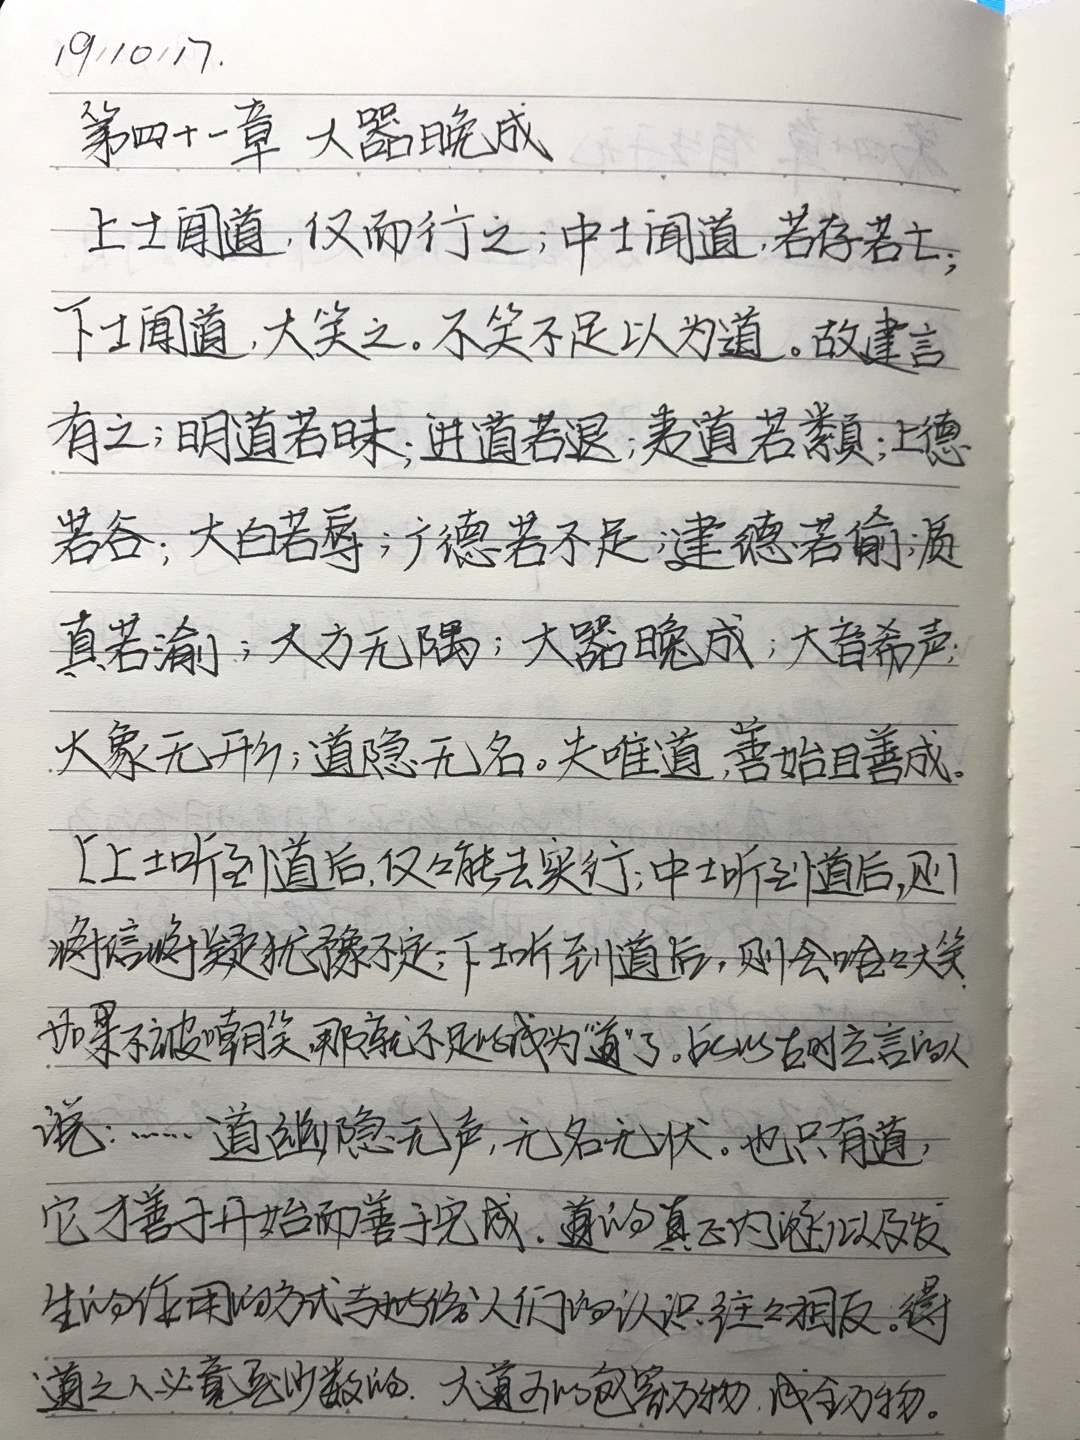 19.10.17.
第四十一章 大器晚成
上士闻道,仅而行之;中士闻道,若存若亡;
下士闻道,大笑之。不笑不足以为道。故建言
有之;明道若昧;进道若退;夷道若纇;上德
若谷;大白若辱;广德若不足;建德若偷;质
真若渝;大方无隅;大器晚成;大音希声;
大象无形;道隐无名。夫唯道,善始且善成。
[上士听到道后,仅仅能去实行;中士听到道后,则
将信将疑犹豫不定;下士听到道后,则会哈哈大笑.
如果不被嘲笑,那就不足以成为“道”了。所以古时立言的人
说:……道幽隐无声,无名无状。也只有道,
它才善于开始而善于完成。道的真正内涵以及发
生的作用的方式与世俗人们的认识往々相反。得
道之人必竟是少数的.大道 的包容万物,成全万物。